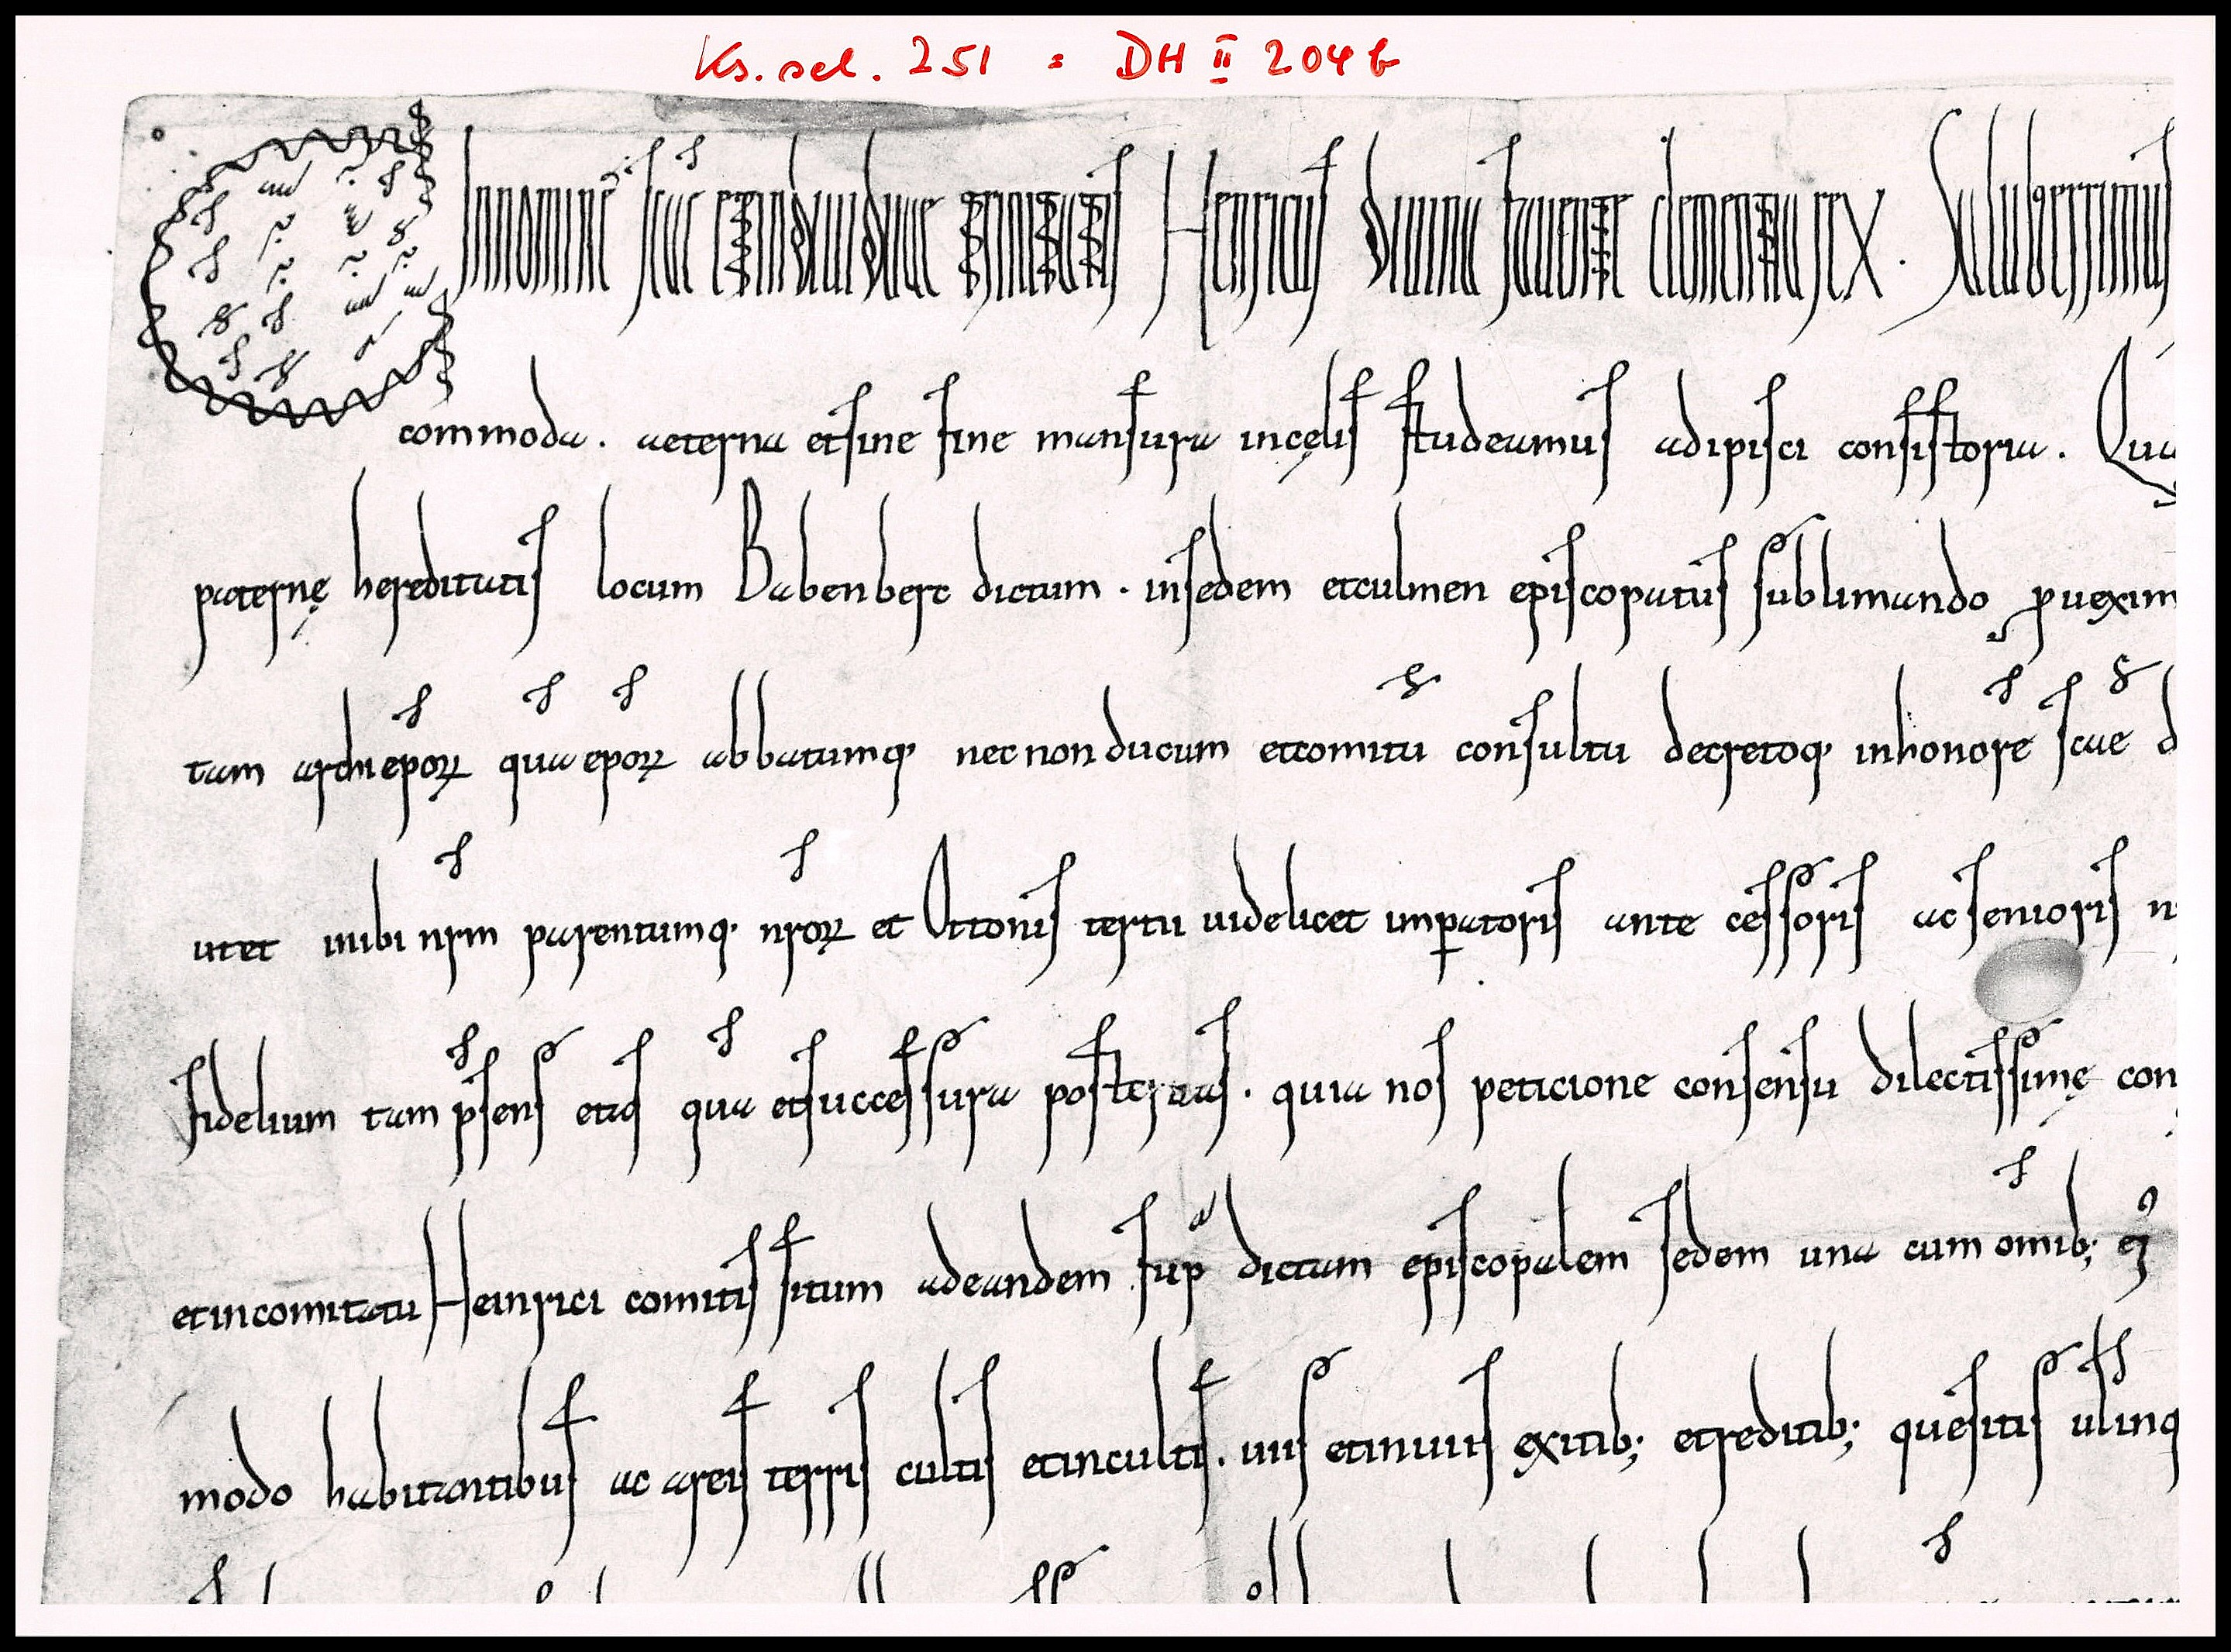 Ks. sel. 251 = DH II 204 b
In nomine scae et individuae trinitatis Heinricus divina favente clementia rex . Saluberrimis
commoda . aeterna et sine fine mansura in cęlis studeamus adipisci consistoria . Qua
paternę hereditatis locum Babenberc dictum . in sedem et culmen episcopatus sublimando pvexim
tam archiepoꝝ qua epoꝝ abbatumq; necnon ducum et comitu consultu decretoq; in honore scae d
ut et inibi nrm parentumq; nroꝝ et Ottonis tertii videlicet impatoris antecessoris ac senioris n
fidelium tam psens etas qua et successura posteritas . quia nos peticione consensu dilectissimę con
et in comitatu Heinrici comitis situm ad eandem supᵃ dictam episcopalem sedem una cum omib; eꝯ
modo habitantibus ac areis terris cultis et incultis . viis et inviis exitib; et reditib; quesitis ul inq